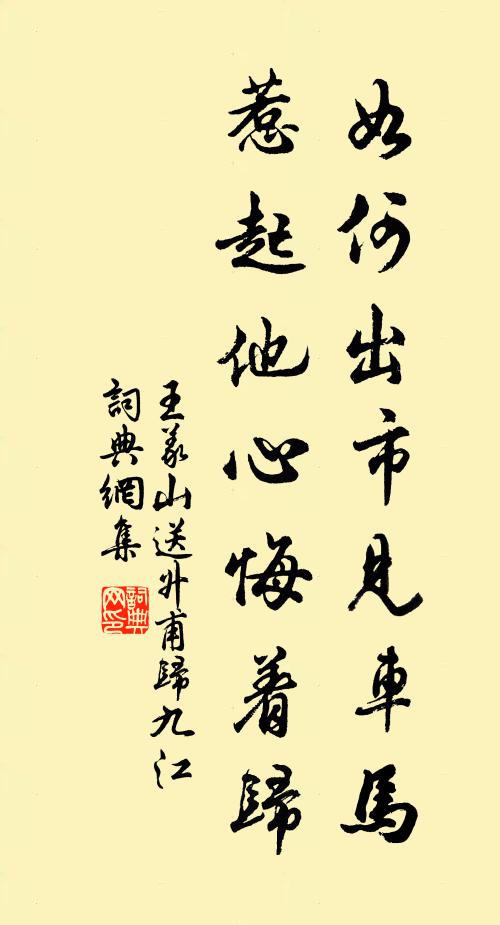 如何出市見車馬
惹起他心悔着歸
王義山送升甫歸九江
詞典網集
詞典网印